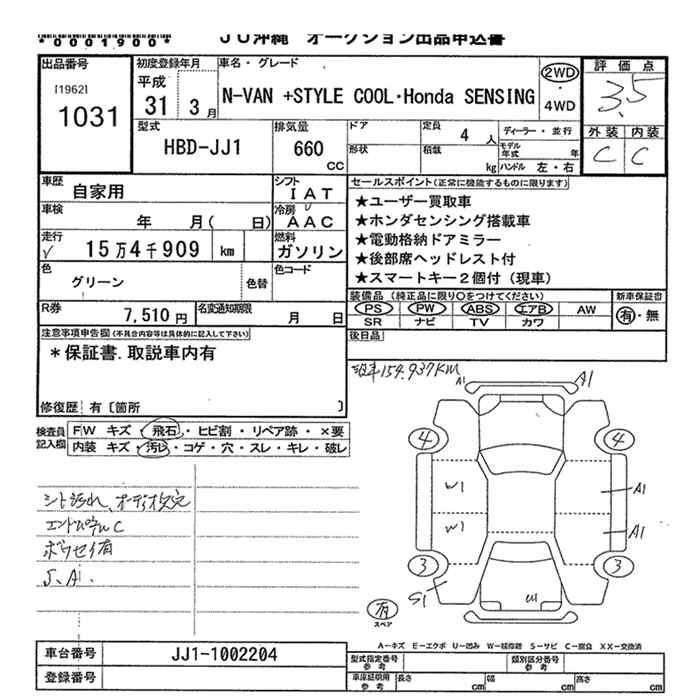 *0001900*
JU沖縄 オークション出品申込書
出品番号
[1962]
1031
初度登録年月
平成
31 3月
車名・グレード
N-VAN +STYLE COOL・Honda SENSING
2WD
・
4WD
評価点
3.5
外装 内装
C C
型式
HBD-JJ1
排気量
660
CC
ドア
形状
定員 4 人
積載 kg
ディーラー・並行
モデル年式 年
ハンドル 左・右
車歴
自家用
シフト
IAT
車検
年 月( 日)
冷房
AAC
走行
✓ 15万4千909 km
燃料
ガソリン
色
グリーン
色替
色コード
R券
7,510円
名変通知期限
月 日
セールスポイント(正常に機能するものに限ります)
★ユーザー買取車
★ホンダセンシング搭載車
★電動格納ドアミラー
★後部席ヘッドレスト付
★スマートキー2個付(現車)
装備品(純正品に限り○をつけてください)
新車保証書
PS PW ABS エアB AW
SR ナビ TV カワ
有・無
後日品
注意事項申告欄(不具合内容等は具体的に記入して下さい)
*保証書.取説車内有
修復歴 有〔箇所 〕
検査員記入欄
FW キズ・飛石・ヒビ割・リペア跡・×要
内装 キズ・汚レ・コゲ・穴・スレ・キレ・破レ
現車154.937KM
A1 A1
4 4
W1 A1
W1 A1
3 3
S1
U1
有
スペア
シート汚れ、オーディオ欠
エンドパネルC
ボウセイ有
S、A1.
A-キズ E-エクボ U-凹み W-補修跡 S-サビ C-腐食 XX-交換済
車台番号
JJ1-1002204
登録番号
型式指定番号
参考
類別区分番号
参考
車庫証明用
参考
長さ cm
幅 cm
高さ cm